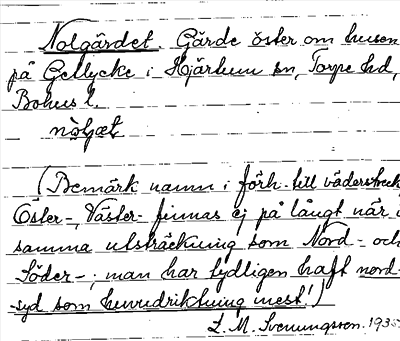 Nolgärdet. Gärde öster om husen
på Gellycke i Hjärtum sn, Torpe hd,
Bohus l.
(Bemärk namn i förh. till väderstreck
Öster-, Väster- finnas ej på långt när i
samma utsträckning som Nord- och
Söder-; man har tydligen haft nord-
-syd som huvudriktning mest!)
L. M. Svenungsson. 1935